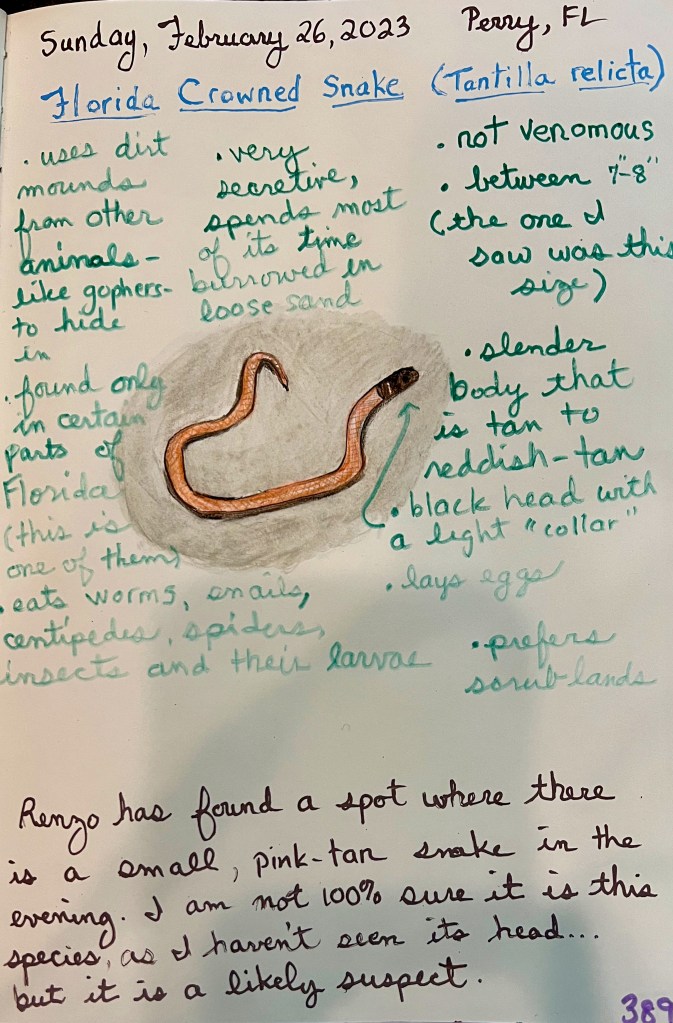 Sunday, February 26, 2023 Perry, FL
Florida Crowned Snake (Tantilla relicta)
• uses dirt
mounds
from other
animals-
like gophers-
to hide
in
• found only
in certain
parts of
Florida
(this is
one of them)
• eats worms, snails,
centipedes, spiders,
insects and their larvae
• very
secretive,
spends most
of its time
burrowed in
loose sand
• not venomous
• between 7"-8"
(the one I
saw was this
size)
• slender
body that
is tan to
reddish-tan
• black head with
a light "collar"
• lays eggs
• prefers
scrub-lands
Renzo has found a spot where there
is a small, pink-tan snake in the
evening. I am not 100% sure it is this
species, as I haven't seen its head...
but it is a likely suspect.
389